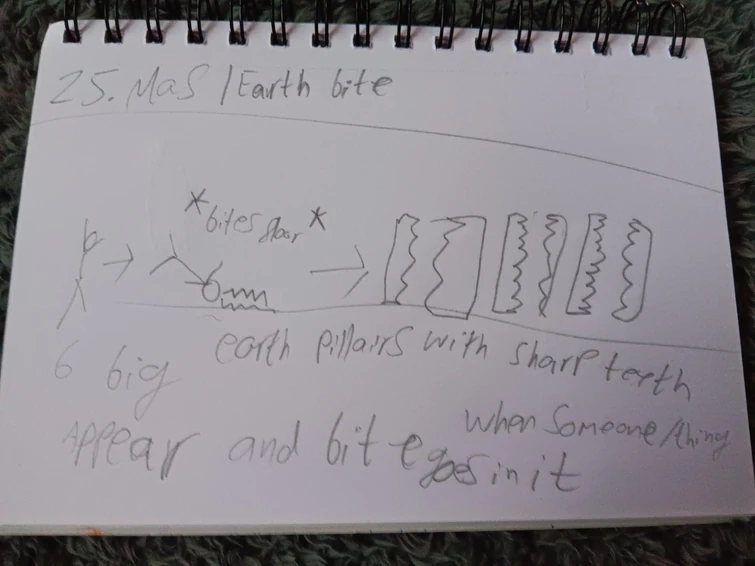 25. MaS / Earth bite
*bites floor*
6 big earth pillairs with sharp teeth
Appear and bite when someone/thing
goes in it